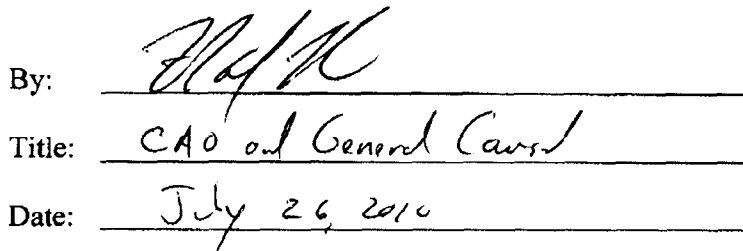 By:
Title: CAO and General Counsel
Date: July 26, 2010